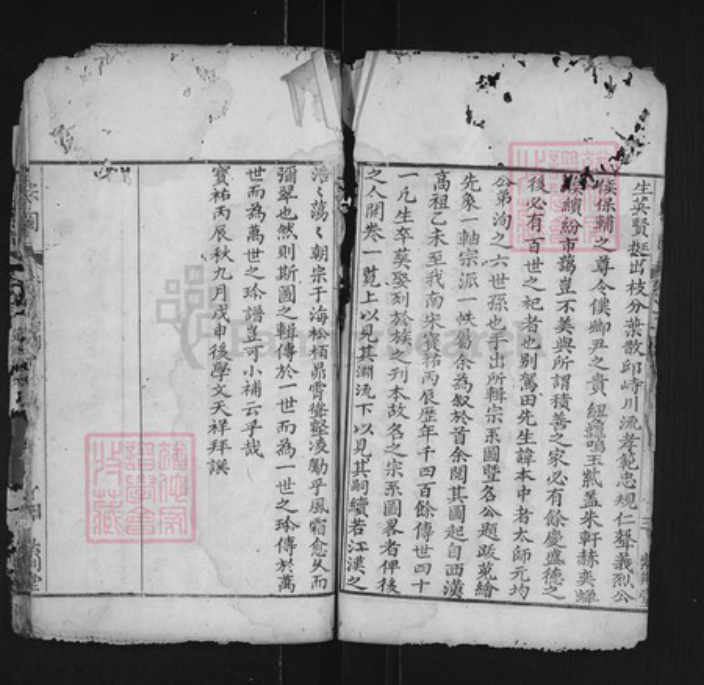 生英賢挺出枝分葉散邱峙川流孝範忠規仁聲義烈公
侯保輔之尊令僕卿尹之貴紐龜鳴玉紫盖朱軒赫奕蟬
繽紛市藹豈不美與所謂積善之家必有餘慶盛德之
後必有百世之祀者也別駕田先生諱本中者太師元均
公弟洵之六世孫也手出所輯宗系圖暨名公題跋蒐繪
先象一軸宗派一帙屬余為敘於首余閱其圖起自西漢
高祖乙未至我南宋寳祐丙辰歷年千四百餘傳世四十
一凡生卒葬娶刻於族之刋本故名之宗系圖畧者俾後
之人開卷一覽上以見其淵流下以見其嗣續若江漢之
浩〻蕩〻朝宗于海松栢昻霄聳壑凌勵乎風霜愈久而
彌翠也然則斯圖之輯傳於一世而為一世之珍傳於萬
世而為萬世之珍譜豈可小補云乎哉
寳祐丙辰秋九月戊申後學文天祥拜譔
宗圖
三